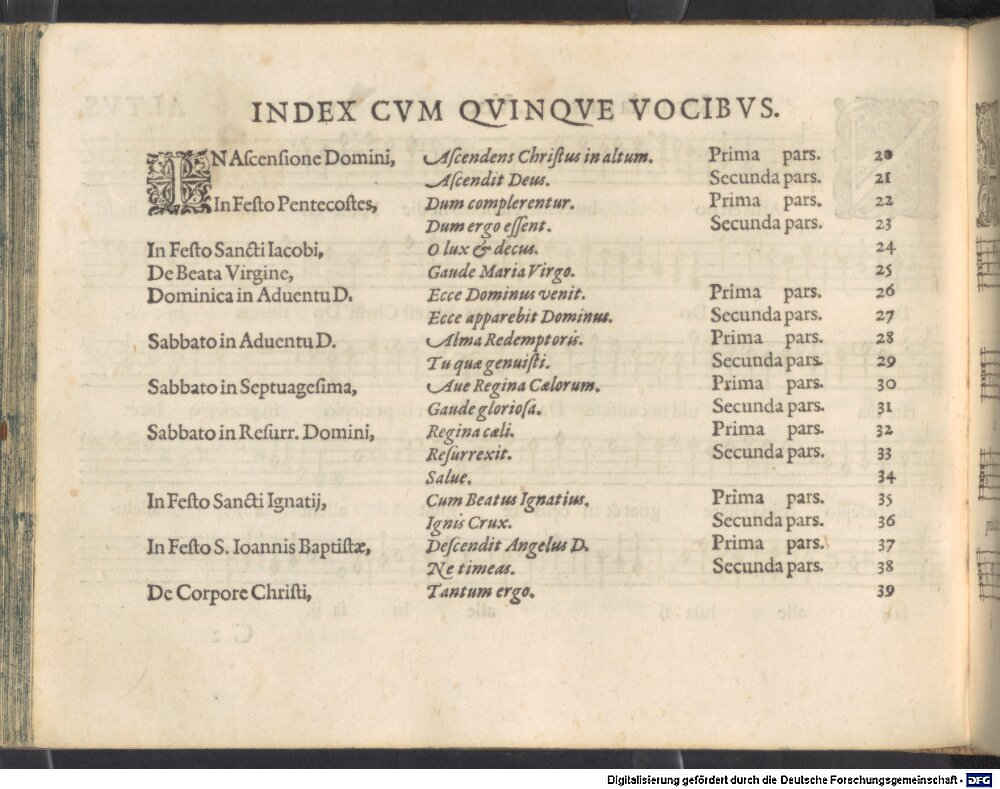 INDEX CVM QVINQVE VOCIBVS.
IN Aſcenſione Domini, Aſcendens Chriſtus in altum. Prima pars. 20
Aſcendit Deus. Secunda pars. 21
In Feſto Pentecoſtes, Dum complerentur. Prima pars. 22
Dum ergo eſſent. Secunda pars. 23
In Feſto Sancti Iacobi, O lux & decus. 24
De Beata Virgine, Gaude Maria Virgo. 25
Dominica in Aduentu D. Ecce Dominus venit. Prima pars. 26
Ecce apparebit Dominus. Secunda pars. 27
Sabbato in Aduentu D. Alma Redemptoris. Prima pars. 28
Tu quæ genuiſti. Secunda pars. 29
Sabbato in Septuageſima, Aue Regina Cælorum. Prima pars. 30
Gaude glorioſa. Secunda pars. 31
Sabbato in Reſurr. Domini, Regina cæli. Prima pars. 32
Reſurrexit. Secunda pars. 33
Salue. 34
In Feſto Sancti Ignatij, Cum Beatus Ignatius. Prima pars. 35
Ignis Crux. Secunda pars. 36
In Feſto S. Ioannis Baptiſtæ, Deſcendit Angelus D. Prima pars. 37
Ne timeas. Secunda pars. 38
De Corpore Chriſti, Tantum ergo. 39
Digitalisierung gefördert durch die Deutsche Forschungsgemeinschaft - DFG